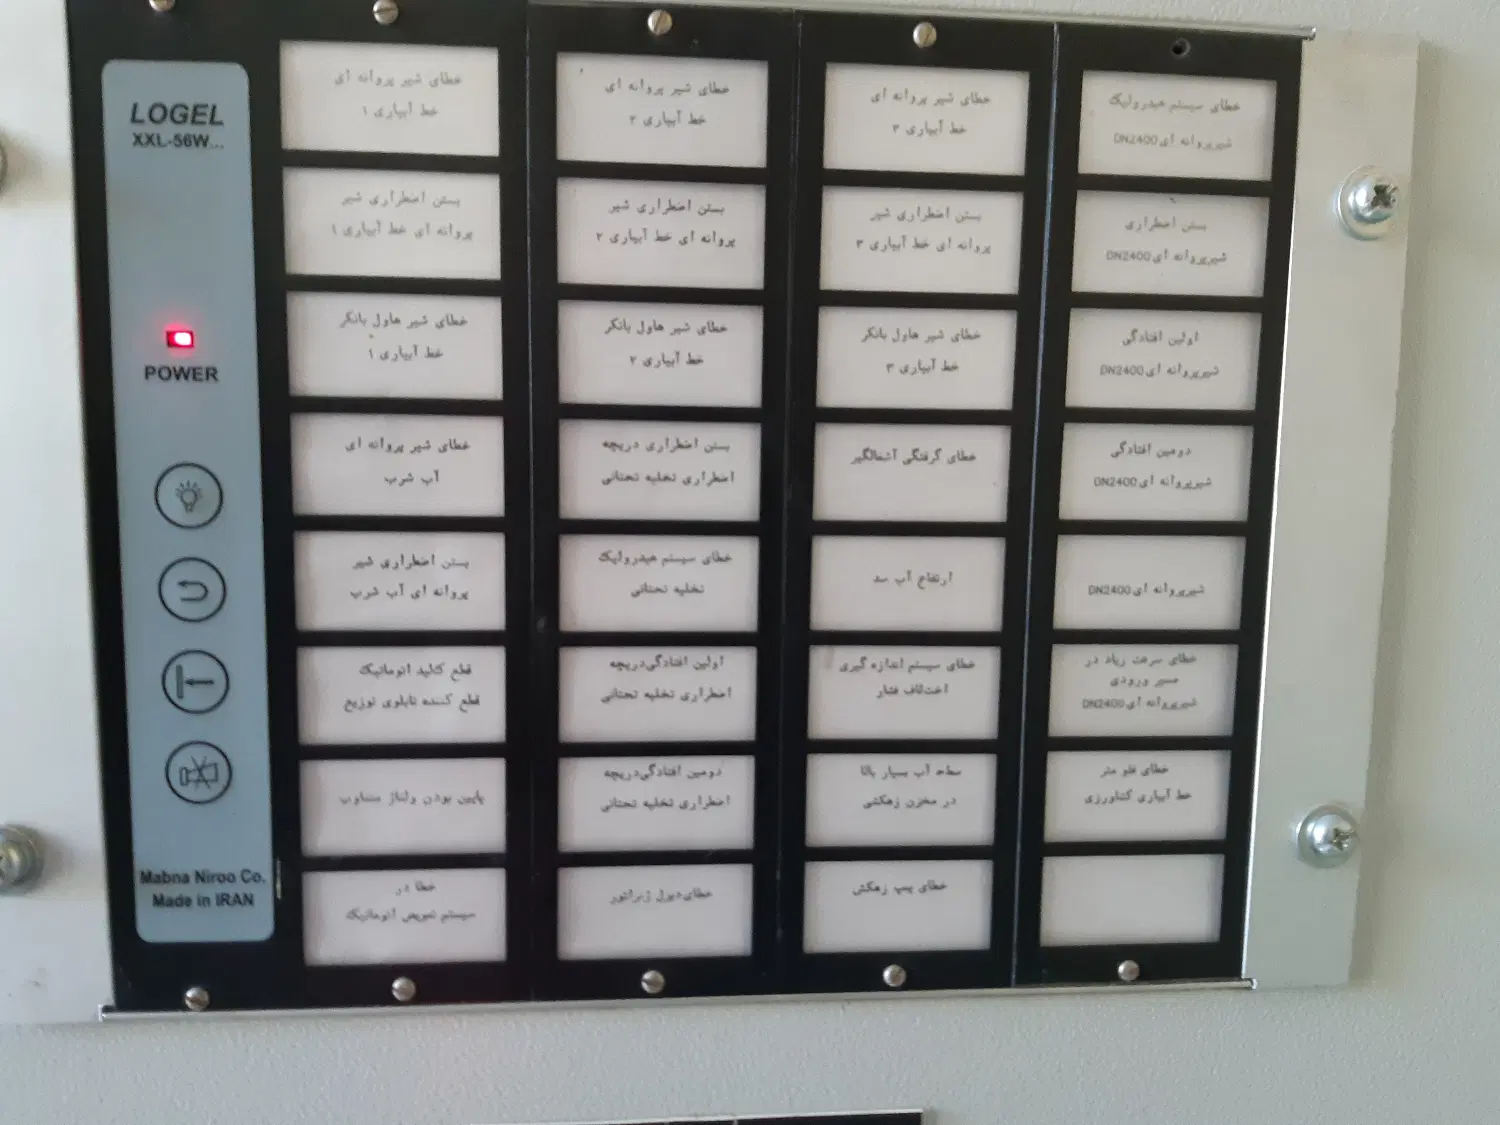 LOGEL
XXL-56W...
POWER
Mabna Niroo Co.
Made in IRAN
خطای شیر پروانه ای
خط آبیاری ۱
بستن اضطراری شیر
پروانه ای خط آبیاری ۱
خطای شیر هاول بانگر
خط آبیاری ۱
خطای شیر پروانه ای
آب شرب
بستن اضطراری شیر
پروانه ای آب شرب
قطع کلید اتوماتیک
قطع کننده تابلوی توزیع
پایین بودن ولتاژ متناوب
خطا در
سیستم تعویض اتوماتیک
خطای شیر پروانه ای
خط آبیاری ۲
بستن اضطراری شیر
پروانه ای خط آبیاری ۲
خطای شیر هاول بانگر
خط آبیاری ۲
بستن اضطراری دریچه
اضطراری تخلیه تحتانی
خطای سیستم هیدرولیک
تخلیه تحتانی
اولین افتادگی دریچه
اضطراری تخلیه تحتانی
دومین افتادگی دریچه
اضطراری تخلیه تحتانی
خطای دیزل ژنراتور
خطای شیر پروانه ای
خط آبیاری ۳
بستن اضطراری شیر
پروانه ای خط آبیاری ۳
خطای شیر هاول بانگر
خط آبیاری ۳
خطای گرفتگی آشغالگیر
ارتفاع آب سد
خطای سیستم اندازه گیری
اختلاف فشار
سطح آب بسیار بالا
در مخزن زهکشی
خطای پمپ زهکش
خطای سیستم هیدرولیک
شیرپروانه ای DN2400
بستن اضطراری
شیرپروانه ای DN2400
اولین افتادگی
شیرپروانه ای DN2400
دومین افتادگی
شیرپروانه ای DN2400
شیرپروانه ای DN2400
خطای سرعت زیاد در
مسیر ورودی
شیرپروانه ای DN2400
خطای فلو متر
خط آبیاری کشاورزی